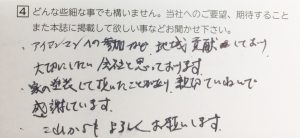 4 どんな些細な事でも構いません。当社へのご要望、期待すること
また本誌に掲載して欲しい事などお聞かせ下さい。
・アイアンマンへの参加など 地域貢献しており
大切にしたい会社と思っております。
・家の塗装して頂いたことがあり 親切ていねいで
感謝しています。
・これからも よろしくお願いします。